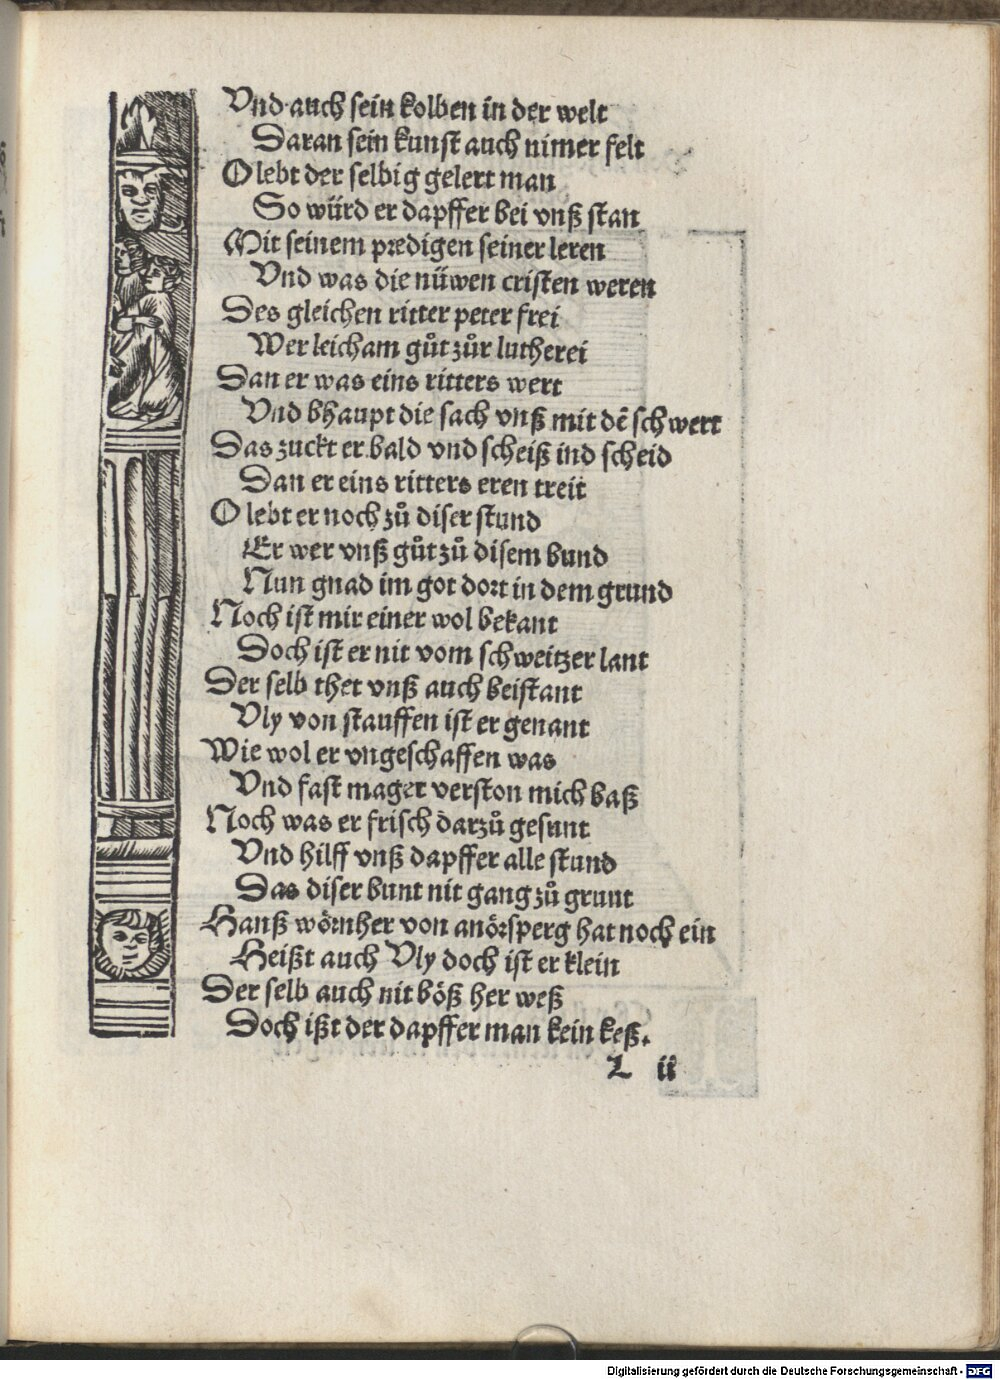 Vnd auch sein kolben in der welt
Daran sein kunst auch nimer felt
O lebt der selbig gelert man
So würd er dapffer bei vnß stan
Mit seinem predigen seiner leren
Vnd was die nüwen cristen weren
Des gleichen ritter peter frei
Wer leicham gůt zůr lutherei
Dan er was eins ritters wert
Vnd bhaupt die sach vnß mit dē schwert
Das zuckt er bald vnd scheiß ind scheid
Dan er eins ritters eren treit
O lebt er noch zů diser stund
Er wer vnß gůt zů disem bund
Nun gnad im got dort in dem grund
Noch ist mir einer wol bekant
Doch ist er nit vom schweitzer lant
Der selb thet vnß auch beistant
Vly von stauffen ist er genant
Wie wol er vngeschaffen was
Vnd fast mager verston mich baß
Noch was er frisch darzů gesunt
Vnd hilff vnß dapffer alle stund
Das diser bunt nit gang zů grunt
Hanß wörnher von anörsperg hat noch ein
Heißt auch Vly doch ist er klein
Der selb auch nit böß her weß
Doch ißt der dapffer man kein keß.
L ii
Digitalisierung gefördert durch die Deutsche Forschungsgemeinschaft - DFG